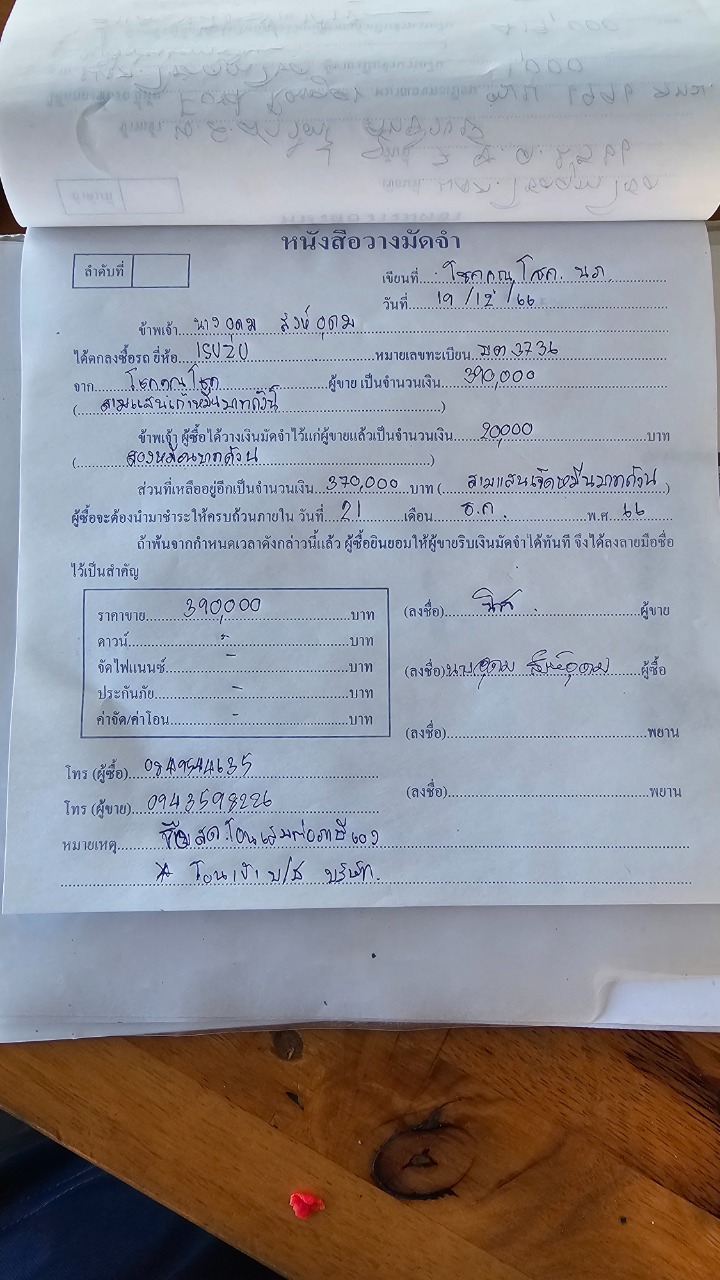 หนังสือวางมัดจำ
ลำดับที่
เขียนที่ โชคคูณโชค. นภ.
วันที่ 19/12/66
ข้าพเจ้า นางอุดม สิงห์อุดม
ได้ตกลงซื้อรถ ยี่ห้อ ISUZU หมายเลขทะเบียน 3736
จาก โชคคูณโชค ผู้ขาย เป็นจำนวนเงิน 390,000
(สามแสนเก้าหมื่นบาทถ้วน)
ข้าพเจ้า ผู้ซื้อได้วางเงินมัดจำไว้แก่ผู้ขายแล้วเป็นจำนวนเงิน 20,000 บาท
(สองหมื่นบาทถ้วน)
ส่วนที่เหลืออยู่อีกเป็นจำนวนเงิน 370,000 บาท (สามแสนเจ็ดหมื่นบาทถ้วน)
ผู้ซื้อจะต้องนำมาชำระให้ครบถ้วนภายใน วันที่ 21 เดือน ธ.ค. พ.ศ. 66
ถ้าพ้นจากกำหนดเวลาดังกล่าวนี้แล้ว ผู้ซื้อยินยอมให้ผู้ขายริบเงินมัดจำได้ทันที จึงได้ลงลายมือชื่อ
ไว้เป็นสำคัญ
ราคาขาย 390,000 บาท
ดาวน์ - บาท
จัดไฟแนนซ์ - บาท
ประกันภัย - บาท
ค่าจัด/ค่าโอน - บาท
(ลงชื่อ) ผู้ขาย
(ลงชื่อ) นางอุดม สิงห์อุดม ผู้ซื้อ
(ลงชื่อ) พยาน
(ลงชื่อ) พยาน
โทร (ผู้ซื้อ) 0849544635
โทร (ผู้ขาย) 0943598226
หมายเหตุ ซื้อสด โอนเล่มต่อภาษีเอง
* โอนเข้า บ/ช บริษัท.